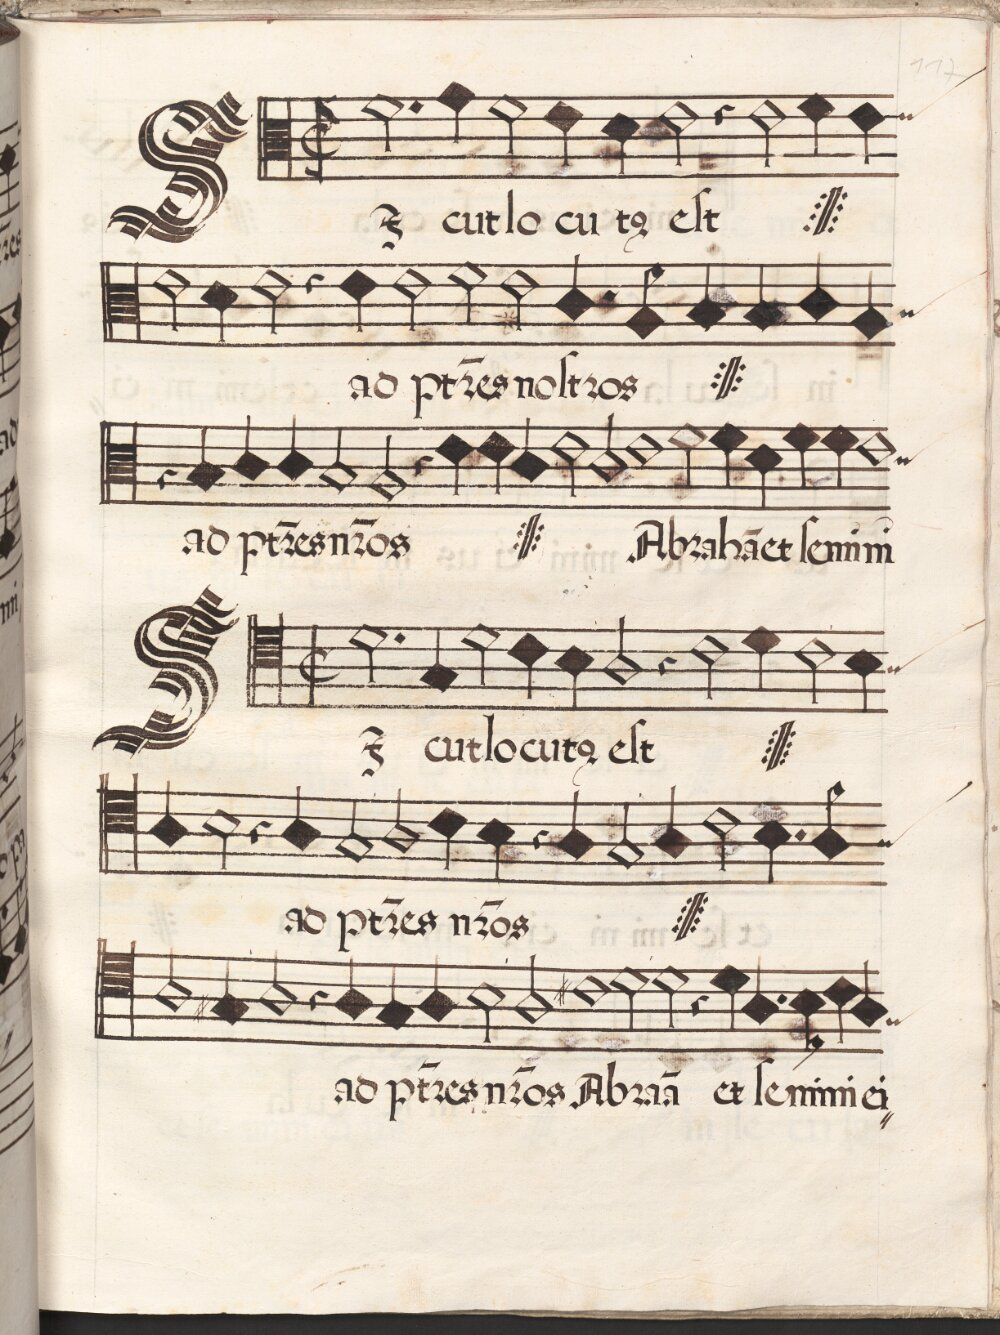 117
Sicut locutꝯ est
ad pt̃res nostros
ad pt̃res nr̃os Abrahã et semini
Sicut locutꝯ est
ad pt̃res nr̃os
ad pt̃res nr̃os Abraã et semini ei